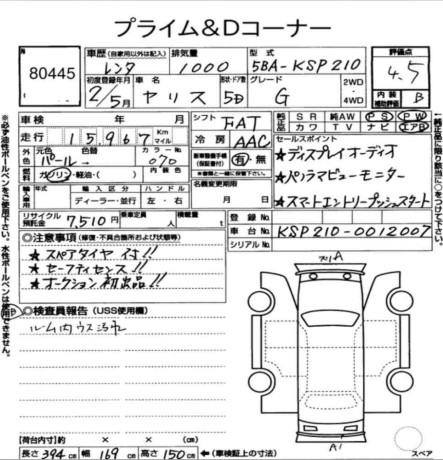 プライム&Dコーナー
80445
車歴 (自家用以外は記入)
レンタ
排気量
1000
型式
5BA-KSP210
評価点
4.5
初度登録年月
2/5月
車名
ヤリス
形状・ドア数
5D
グレード
G
2WD
4WD
内装
補助評価
B
車検 年 月
走行 15,967 Km マイル
シフト
FAT
冷房
AAC
純正 SR 純AW PS PW
装備 カワ TV ナビ エアB
外色
元色
パール→
色替
カラーNo.
070
内装色
燃料
ガソリン・軽油・( )
新車整備手帳
(保証書付)
有・無
セールスポイント
★ディスプレイオーディオ
★パノラマビューモニター
★スマートエントリープッシュスタート
輸入車用
年式
輸入区分
ディーラー・並行
ハンドル
左・右
名義変更期限
月 日
リサイクル預託金
7,510円
乗車定員
人
積載量
登録No.
車台No.
KSP210-0012007
シリアルNo.
◎注意事項 (修復・不具合箇所および状態等)
★スペアタイヤ付!!
★セーフティセンス!!
★オークション初出品!!
◎検査員報告 (USS使用欄)
ルーム内ウス汚れ
A
A1
スペア
【荷台内寸】約 × × (cm)
長さ 394 cm 幅 169 cm 高さ 150 cm ←(車検証上の寸法)
※必ず油性ボールペンをご使用下さい。水性ボールペンは使用できません。
純正品に限り該当に○をつけて下さい。